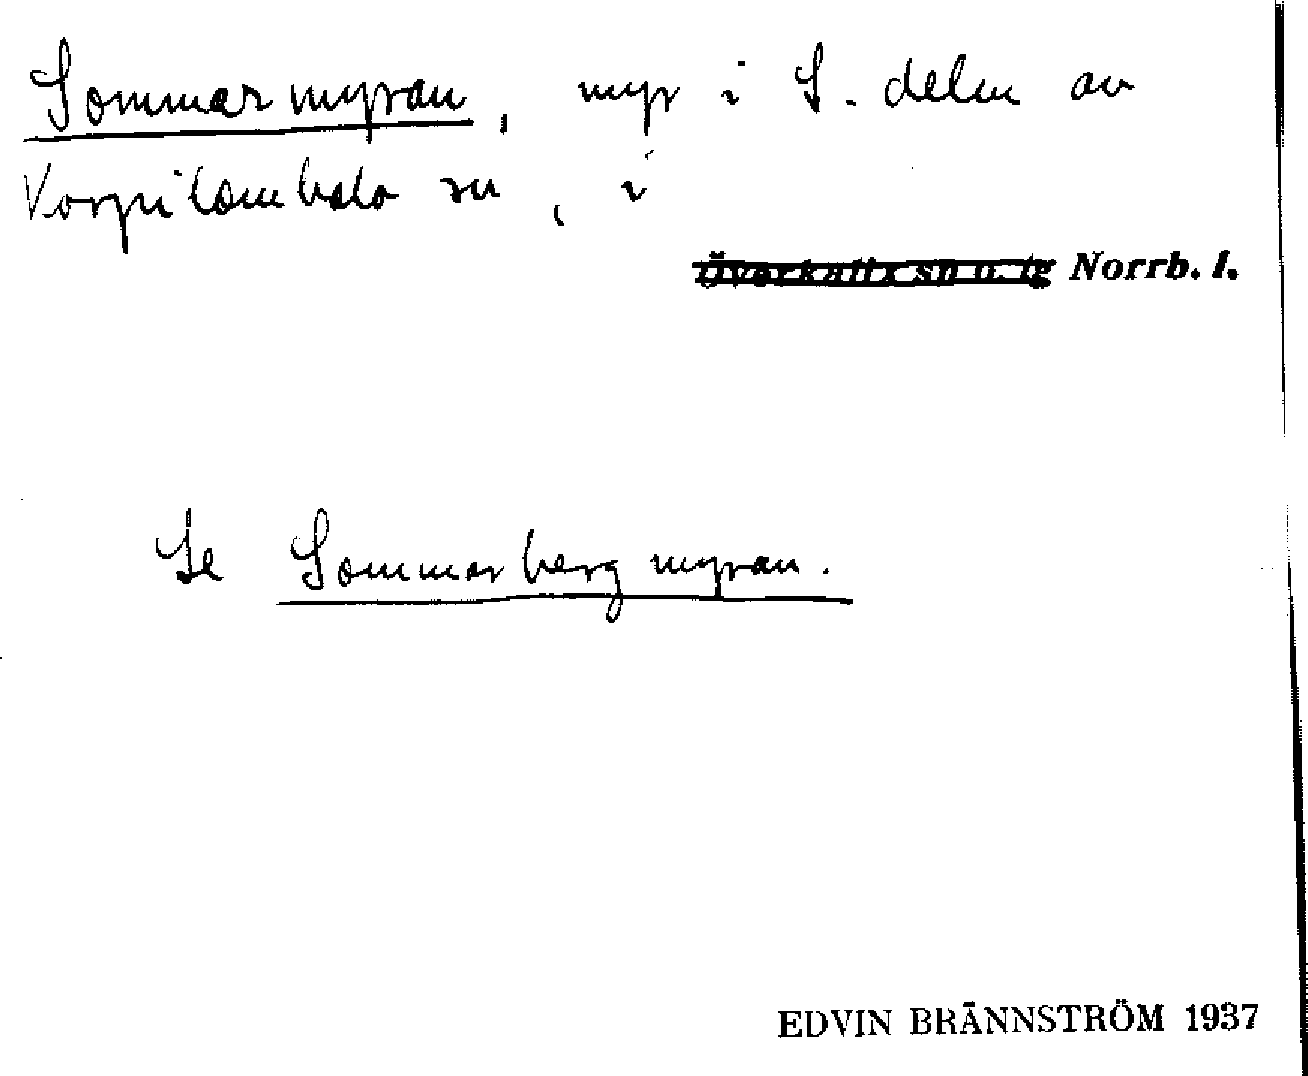 Sommarmyran, myr i S. delen av
Korpilombolo sn, i
Överkalix sn o. tg Norrb. l.
Se Sommarbergmyran.
EDVIN BRÄNNSTRÖM 1937